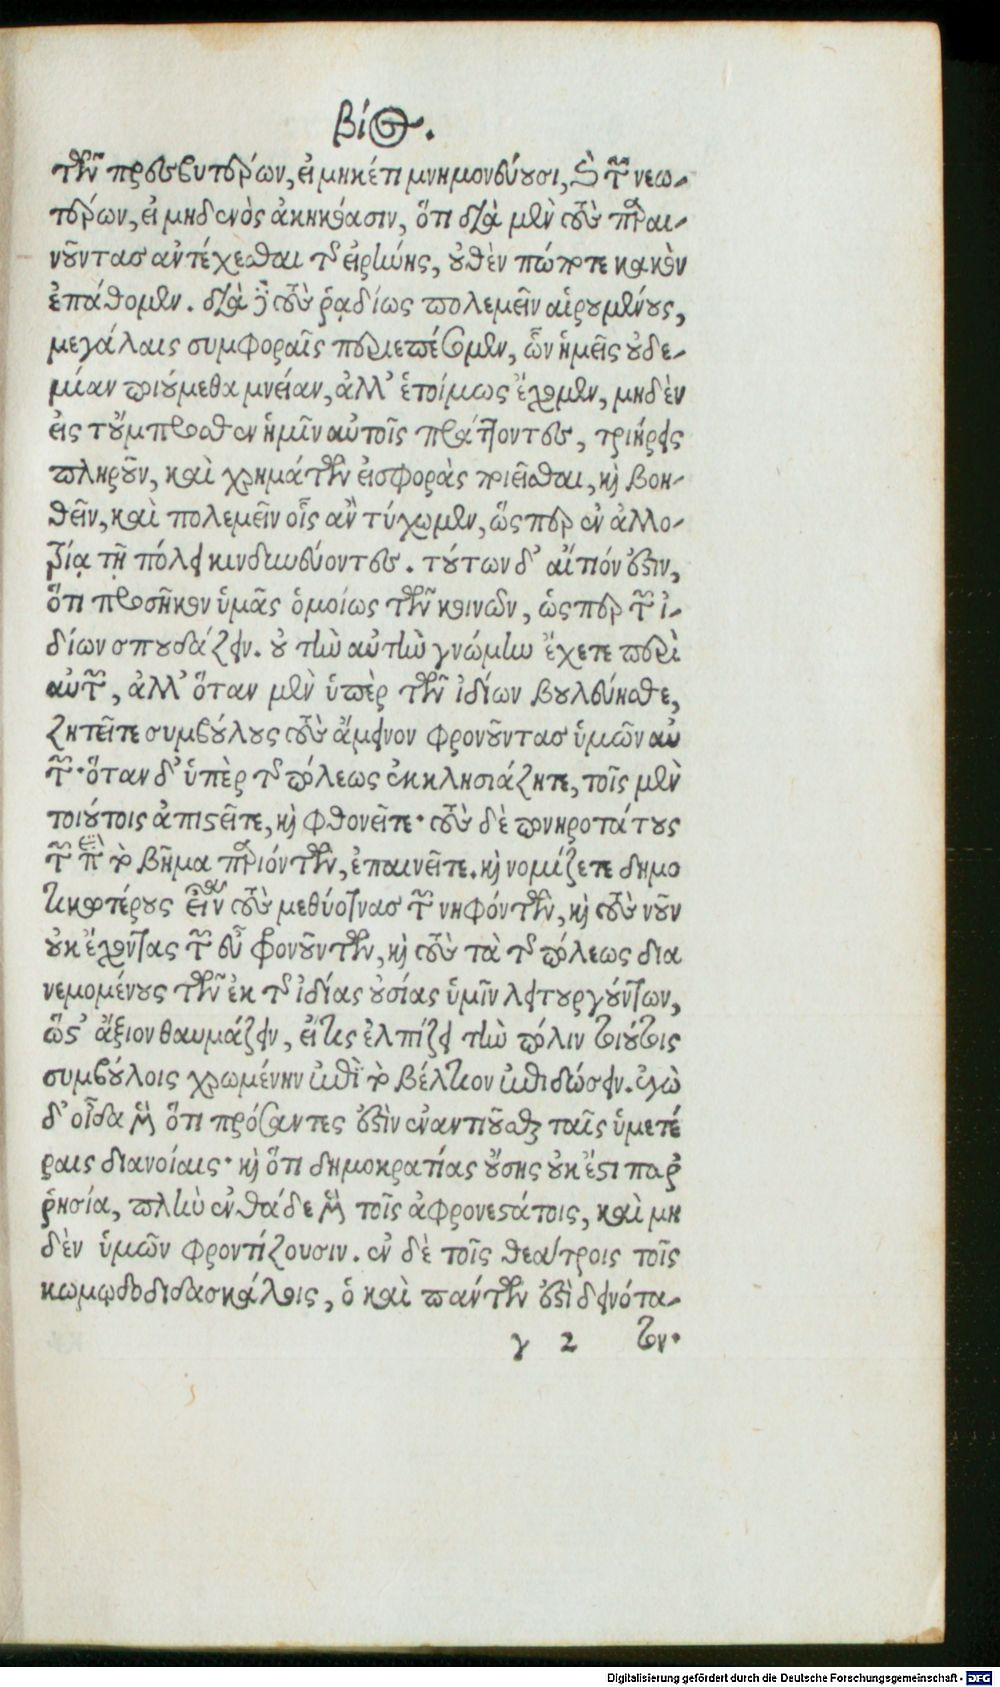 βίος.
τῶν πρεσβυτέρων, εἰ μηκέτι μνημονεύουσι, καὶ τῶν νεω-
τέρων, εἰ μηδενὸς ἀκηκόασιν, ὅτι διὰ μὲν τοὺς παραι-
νοῦντας ἀντέχεσθαι τῆς εἰρήνης, οὐθὲν πώποτε κακὸν
ἐπάθομεν. διὰ δὲ τοὺς ῥᾳδίως πολεμεῖν αἱρουμένους,
μεγάλαις συμφοραῖς περιεπέσομεν, ὧν ἡμεῖς οὐδε-
μίαν ποιούμεθα μνείαν, ἀλλ' ἑτοίμως ἔχομεν, μηδὲν
εἰς τοὔμπροσθεν ἡμῖν αὐτοῖς πράττοντες, τριήρεις
πληροῦν, καὶ χρημάτων εἰσφορὰς ποιεῖσθαι, καὶ βοη-
θεῖν, καὶ πολεμεῖν οἷς ἂν τύχωμεν, ὥσπερ ἐν ἀλλο-
τρίᾳ τῇ πόλει κινδυνεύοντες. τούτων δ' αἴτιόν ἐστιν,
ὅτι προσῆκον ὑμᾶς ὁμοίως τῶν κοινῶν, ὥσπερ τῶν ἰ-
δίων σπουδάζειν. οὐ τὴν αὐτὴν γνώμην ἔχετε περὶ
αὐτῶν, ἀλλ' ὅταν μὲν ὑπὲρ τῶν ἰδίων βουλεύησθε,
ζητεῖτε συμβούλους τοὺς ἄμεινον φρονοῦντας ὑμῶν αὐ
τῶν· ὅταν δ' ὑπὲρ τῆς πόλεως ἐκκλησιάζητε, τοῖς μὲν
τοιούτοις ἀπιστεῖτε, καὶ φθονεῖτε· τοὺς δὲ πονηροτάτους
τῶν ἐπὶ τὸ βῆμα παριόντων, ἐπαινεῖτε. καὶ νομίζετε δημο
τικοτέρους εἶναι τοὺς μεθύοντας τῶν νηφόντων, καὶ τοὺς νοῦν
οὐκ ἔχοντας τῶν εὖ φρονούντων, καὶ τοὺς τὰ τῆς πόλεως δια
νεμομένους τῶν ἐκ τῆς ἰδίας οὐσίας ὑμῖν λειτουργούντων,
ὥστ' ἄξιον θαυμάζειν, εἴ τις ἐλπίζει τὴν πόλιν τοιούτοις
συμβούλοις χρωμένην ἐπὶ τὸ βέλτιον ἐπιδώσειν. ἐγὼ
δ' οἶδα μὲν ὅτι πρόσαντές ἐστὶν ἐναντιοῦσθαι ταῖς ὑμετέ
ραις διανοίαις· καὶ ὅτι δημοκρατίας οὔσης οὐκ ἔστι παῤ
ῥησία, πλὴν ἐνθάδε μὲν τοῖς ἀφρονεστάτοις, καὶ μη
δὲν ὑμῶν φροντίζουσιν. ἐν δὲ τοῖς θεάτροις τοῖς
κωμῳδοδιδασκάλοις, ὃ καὶ πάντων ἐστὶ δεινότα-
γ 2 τον·
Digitalisierung gefördert durch die Deutsche Forschungsgemeinschaft - DFG